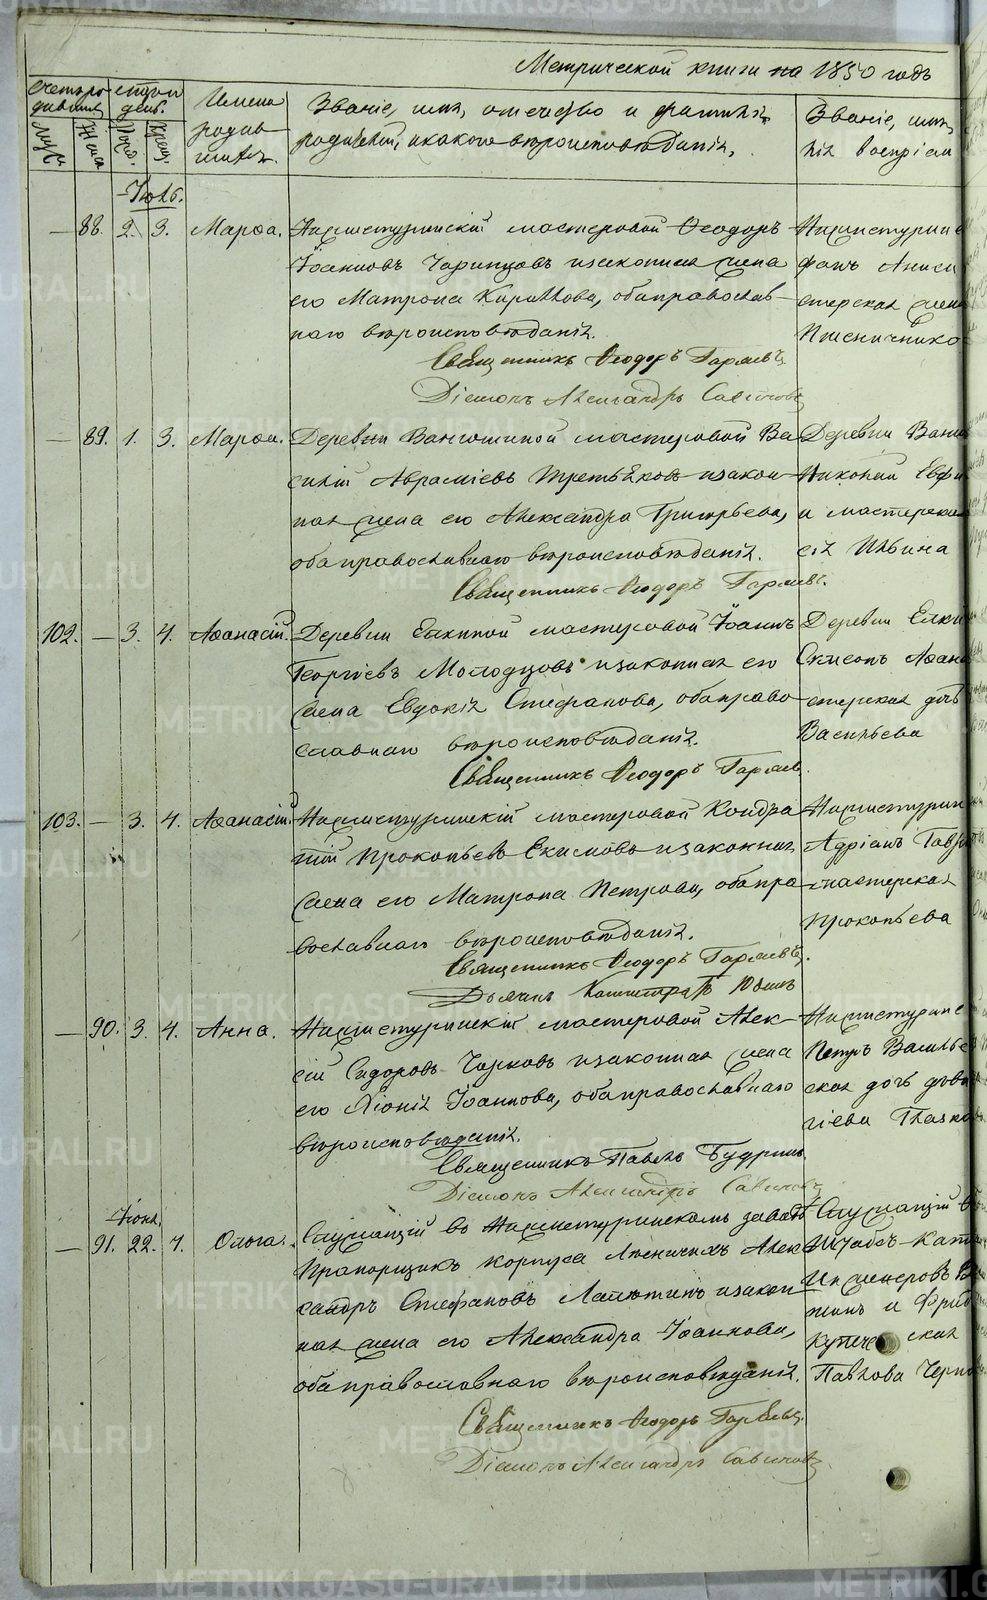 Метрической книги на 1850 годъ
Счетъ родившихся
Муж.
Жен.
Число и день
Рожд.
Крещ.
Имена родившихся.
Званіе, имя, отечество и фамилія
родителей, и какого вѣроисповѣданія.
Званіе, имя,
лія воспріем
Іюль.
— 88. 2. 3. Марѳа. Нижнетуринскій мастеровой Ѳеодоръ
Іоанновъ и законная жена
его Матрона Кириллова, оба православ-
наго вѣроисповѣданія.
Священникъ Ѳеодоръ
Діаконъ Александръ
Нижнетуринс
фанъ Аниси
стерская жена
Пшеничнико
— 89. 1. 3. Марѳа. Деревни мастеровой Ва-
силій Авраміевъ Третьяковъ и закон-
ная жена его Александра Григорьева,
оба православнаго вѣроисповѣданія.
Священникъ Ѳеодоръ
Деревни
Николай Евфи
и мастерская
сія Ильина
102. — 3. 4. Аѳанасій. Деревни Елкиной мастеровой Іоаннъ
Георгіевъ Молодцовъ и законная его
жена Евдокія Стефанова, оба право-
славнаго вѣроисповѣданія.
Священникъ Ѳеодоръ
Деревни Елки
Симеонъ Аѳана
стерская дочь
Васильева
103. — 3. 4. Аѳанасій. Нижнетуринскій мастеровой Кондра-
тій Прокопьевъ Екимовъ и законная
жена его Матрона Петрова, оба пра-
вославнаго вѣроисповѣданія.
Священникъ Ѳеодоръ
Дьячекъ
Нижнетурин
Адріанъ Гавр
мастерская
Прокопьева
— 90. 3. 4. Анна. Нижнетуринскій мастеровой Алек-
сій Сидоровъ и законная жена
его Іоаннова, оба православнаго
вѣроисповѣданія.
Священникъ Павелъ
Діаконъ Александръ
Нижнетуринс
Петръ Василье
ская дочь дѣви
Глазко
Іюня.
— 91. 22. 4. Ольга. Служащій въ Нижнетуринскомъ заводѣ
Прапорщикъ корпуса Лѣсничихъ Алек-
сандръ Стефановъ и закон-
ная жена его Александра Іоаннова,
оба православнаго вѣроисповѣданія.
Священникъ Ѳеодоръ
Діаконъ Александръ
Служащій
Штабсъ-Кап
Инженеровъ
и Фрид
Купеческая
Павлова Черно
METRIKI.GASO-URAL.RU